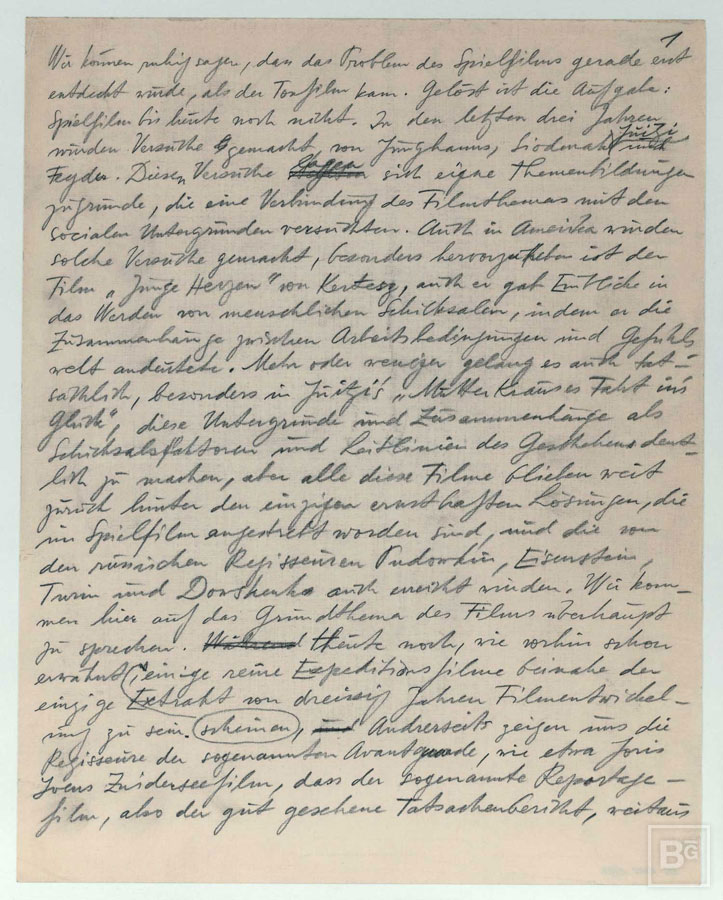 1
Wir können ruhig sagen, dass das Problem des Spielfilms gerade erst
entdeckt wurde, als der Tonfilm kam. Gelöst ist die Aufgabe:
Spielfilm bis heute noch nicht. In den letzten drei Jahren
wurden Versuche gemacht, von Junghanns, Siodmak, Juitzi
Feyder. Diesen Versuche sich eigne Themenbildungen
zugrunde, die eine Verbindung des Filmthemas mit den
socialen Untergründen versuchten. Auch in Amerika wurden
solche Versuche gemacht, besonders hervorzuheben ist der
Film „Junge Herzen" von Kertesz, auch er gab Einblicke in
das Werden von menschlichen Schicksalen, indem er die
Zusammenhänge zwischen Arbeitsbedingungen und Gefühls
welt andeutete. Mehr oder weniger gelang es auch tat-
sächlich, besonders in Juitzi's „Mutter Krauses Fahrt ins
Glück", diese Untergründe und Zusammenhänge als
Schicksalsfaktoren und Leitlinien des Geschehens deut-
lich zu machen, aber alle diese Filme blieben weit
zurück hinter den einzigen ernsthaften Lösungen, die
im Spielfilm angestrebt worden sind, und die von
den russischen Regisseuren Pudowkin, Eisenstein,
Turin und Dowshenko auch erreicht wurden. Wir kom-
men hier auf das Grundthema des Films überhaupt
zu sprechen. Während heute noch, wie vorhin schon
erwähnt, einige reine Expeditionsfilme beinahe der
einzige Extrakt von dreissig Jahren Filmentwickel-
ung zu sein. scheinen, und Andrerseits zeigen uns die
Regisseure der sogenannten Avantgarde, wie etwa Joris
Ivens Zuiderseefilm, dass der sogenannte Reportage-
film, also der gut gesehene Tatsachenbericht, weitaus
BG